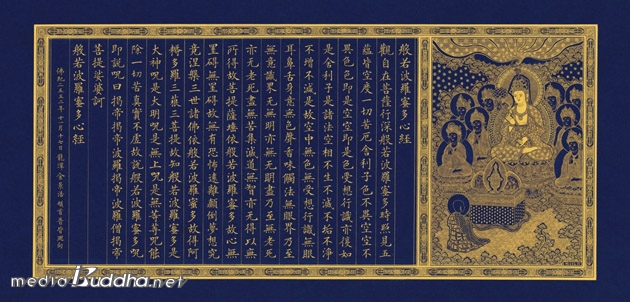 般若波羅蜜多心經
觀自在菩薩行深般若波羅蜜多時照見五
蘊皆空度一切苦厄舍利子色不異空空不
異色色即是空空即是色受想行識亦復如
是舍利子是諸法空相不生不滅不垢不淨
不增不減是故空中無色無受想行識無眼
耳鼻舌身意無色聲香味觸法無眼界乃至
無意識界無無明亦無無明盡乃至無老死
亦無老死盡無苦集滅道無智亦無得以無
所得故菩提薩埵依般若波羅蜜多故心無
罣碍無罣碍故無有恐怖遠離顛倒夢想究
竟涅槃三世諸佛依般若波羅蜜多故得阿
耨多羅三藐三菩提故知般若波羅蜜多是
大神呪是大明呪是無上呪是無等等呪能
除一切苦真實不虛故說般若波羅蜜多呪
即說呪曰揭帝揭帝波羅揭帝波羅僧揭帝
菩提娑婆訶
般若波羅蜜多心經
佛紀二五五二年十一月十七日 金景浩
mediaBuddha.net